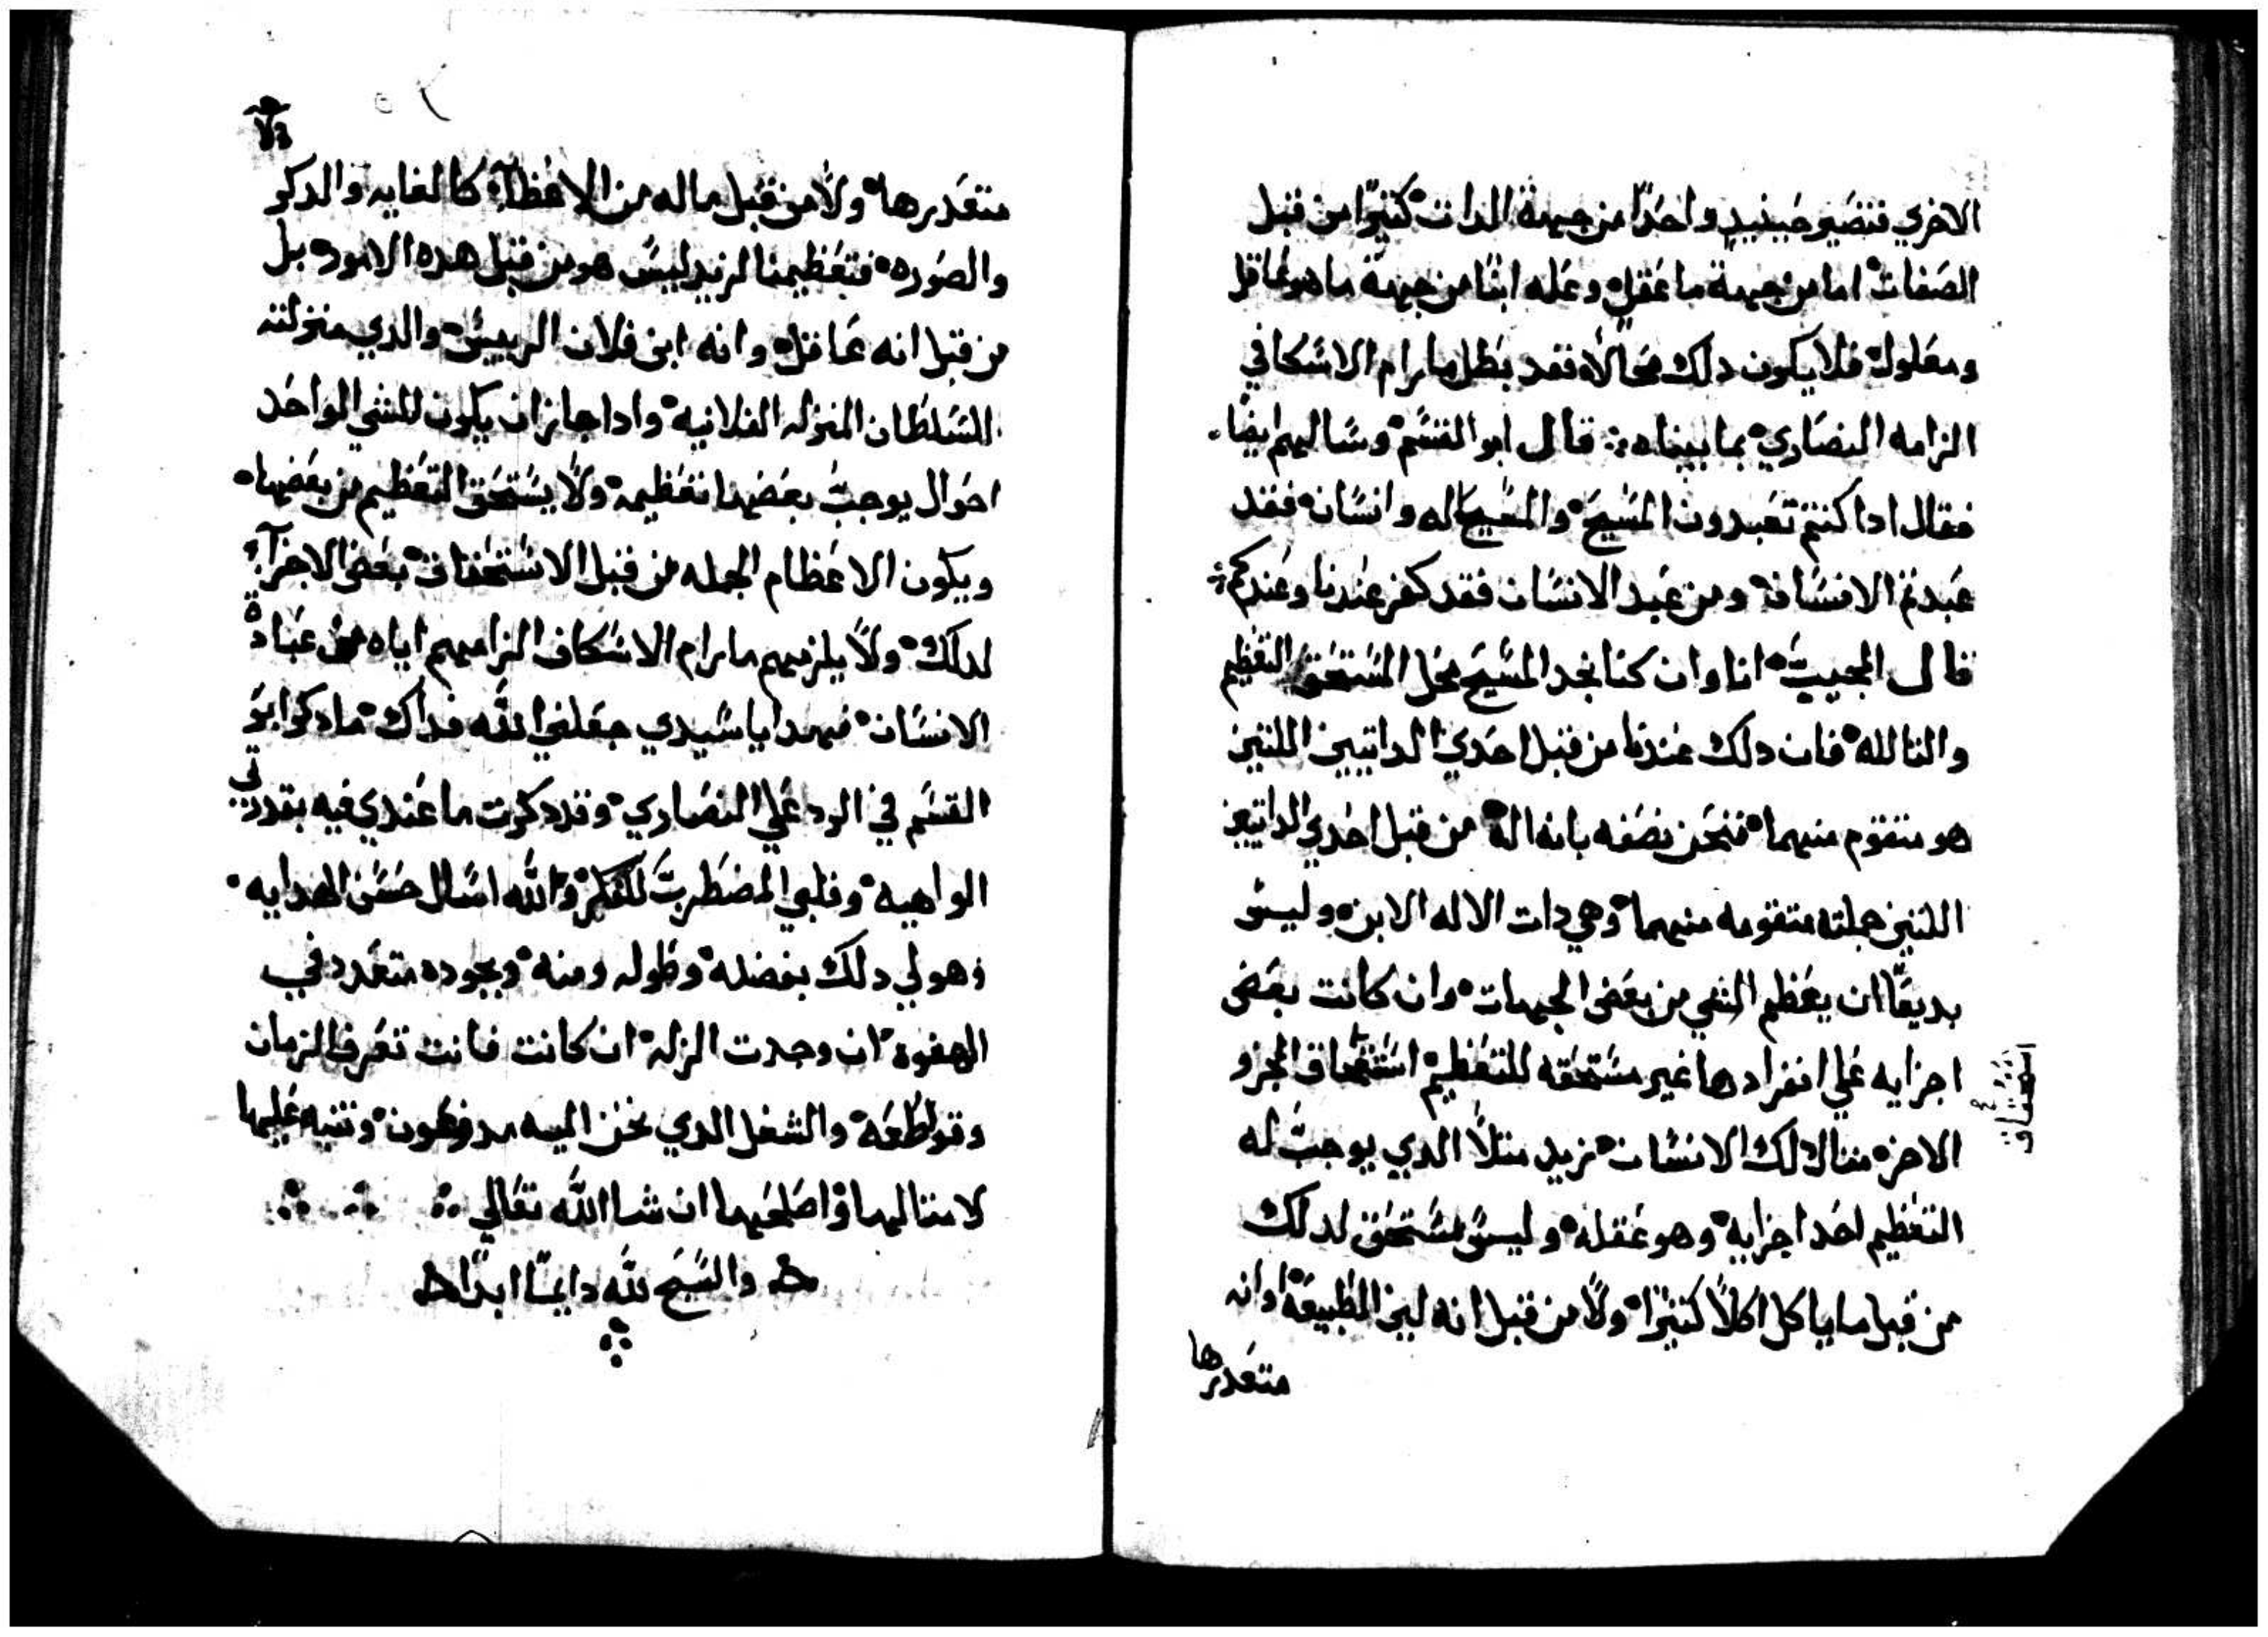 الاخري فتصير حينيدٍ واحدًا من جهة الدات كثيرًا من قبل
الصفات اما من جهة ما عقل وعله ابنًا من جهة ما هو عاقل
ومعلول فلا يكون دلك محالًا فقد بطل ما رام الاسكافي
الزامه النصاري بما بيناه قال ابو القسم وسالهم ايضًا
فقال ادا كنتم تعبدون المسيح والمسيح اله وانسان فقد
عبدتم الانسان ومن عبد الانسان فقد كفر عندنا وعندكم
قال المجيب انا وان كنا نجد المسيح محل المستحق التعظيم
والتالله فان دلك عندنا من قبل احدي الداتيين اللتين
هو متقوم منهما فنحن نصفه بانه اله من قبل احدي الداتين
اللتين جملته متقومه منهما وهي دات الاله الابن وليس
بديعًا ان يعظم الشي من بعض الجهات وان كانت بعض
اجزايه علي انفرادها غير مستحقه للتعظيم استحقاق الجزو
استحقاق
الاخر مثال دلك الانسان زيد مثلًا الدي يوجب له
التعظيم احد اجزايه وهو عقله وليس مستحق لدلك
من قبل ما ياكل اكلًا كثيرًا ولا من قبل انه لين الطبيعة او انه
متعدرها
متعدرها ولا من قبل ماله من الاعظآء كالغايه والدكر
والصوره فتعظيمنا لزيد ليس هو من قبل هده الامور بل
من قبل انه عاقل وانه ابن فلان الرييس والدي منزلته
للسلطان المنزله الفلانيه وادا جاز ان يكون للشي الواحد
احوال يوجب بعضها تعظيمه ولا يستحق التعظيم من بعضها
ويكون الاعظام الجمله من قبل الاستحقاق بعض الاجزآء
لدلك ولا يلزمهم ما رام الاسكاف الزامهم اياه من عبادة
الانسان فهدا يا سيدي جعلني الله فداك ما دكر ابو
القسم في الرد علي النصاري وقد دكرت ما عندي فيه بقدرتي
الواهية وقلبي المضطرب للفكر والله اسال حسن الهدايه
وهو لي دلك بفضله وطوله ومنه وبجوده متعدد في
الهفوة ان وجدت الزله ان كانت فانت تعرف الزمان
وقواطعه والشغل الدي نحن اليه مدفوعون وتنبه عليها
لامتثالها واصلحها ان شا الله تعالي
والسبح لله دايمًا ابدًا